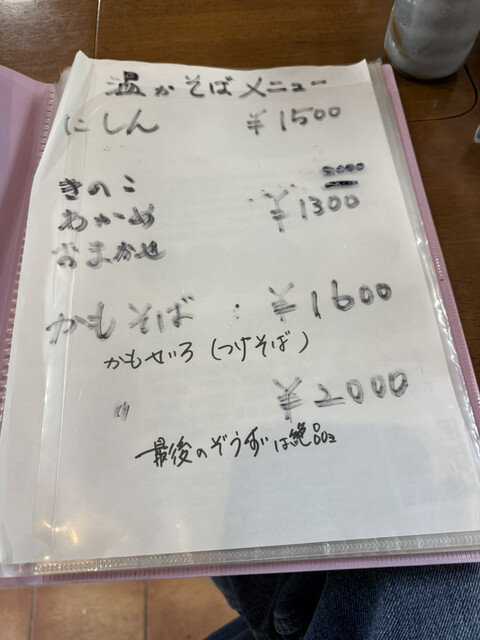 温かそばメニュー
にしん ¥1500
きのこ
わかめ ¥1300
おまかせ
かもそば : ¥1600
かもせいろ (つけそば)
¥2000
最後のぞうすいは絶品